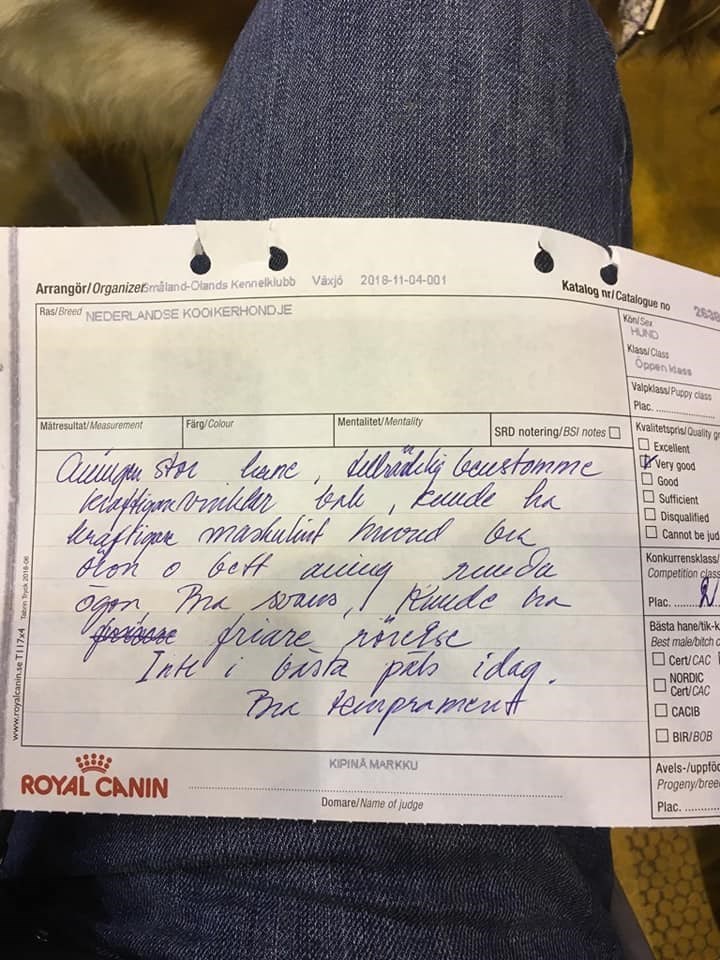 Arrangör/Organizer Småland-Ölands Kennelklubb Växjö 2018-11-04-001
Katalog nr/Catalogue no 2638
Ras/Breed NEDERLANDSE KOOIKERHONDJE
Kön/Sex
HUND
Klass/Class
Öppen klass
Valpklass/Puppy class
Plac.
Mätresultat/Measurement Färg/Colour Mentalitet/Mentality SRD notering/BSI notes
Kvalitetspris/Quality gr
Excellent
Very good
Good
Sufficient
Disqualified
Cannot be jud
Aningen stor hane, tillräcklig benstomme
kraftigare vinklar bak, kunde ha
kraftigare maskulint huvud bra
öron o bett aning runda
ögon, Bra svans, Kunde ha
friare rörelse
Inte i bästa päls idag.
Bra temprament
Konkurrensklass/
Competition class
Plac.
Bästa hane/tik-k
Best male/bitch c
Cert/CAC
NORDIC
Cert/CAC
CACIB
BIR/BOB
Avels-/uppföd
Progeny/bree
Plac.
www.royalcanin.se T117x4 Tabrin Tryck 2018-06
ROYAL CANIN
KIPINÄ MARKKU
Domare/Name of judge